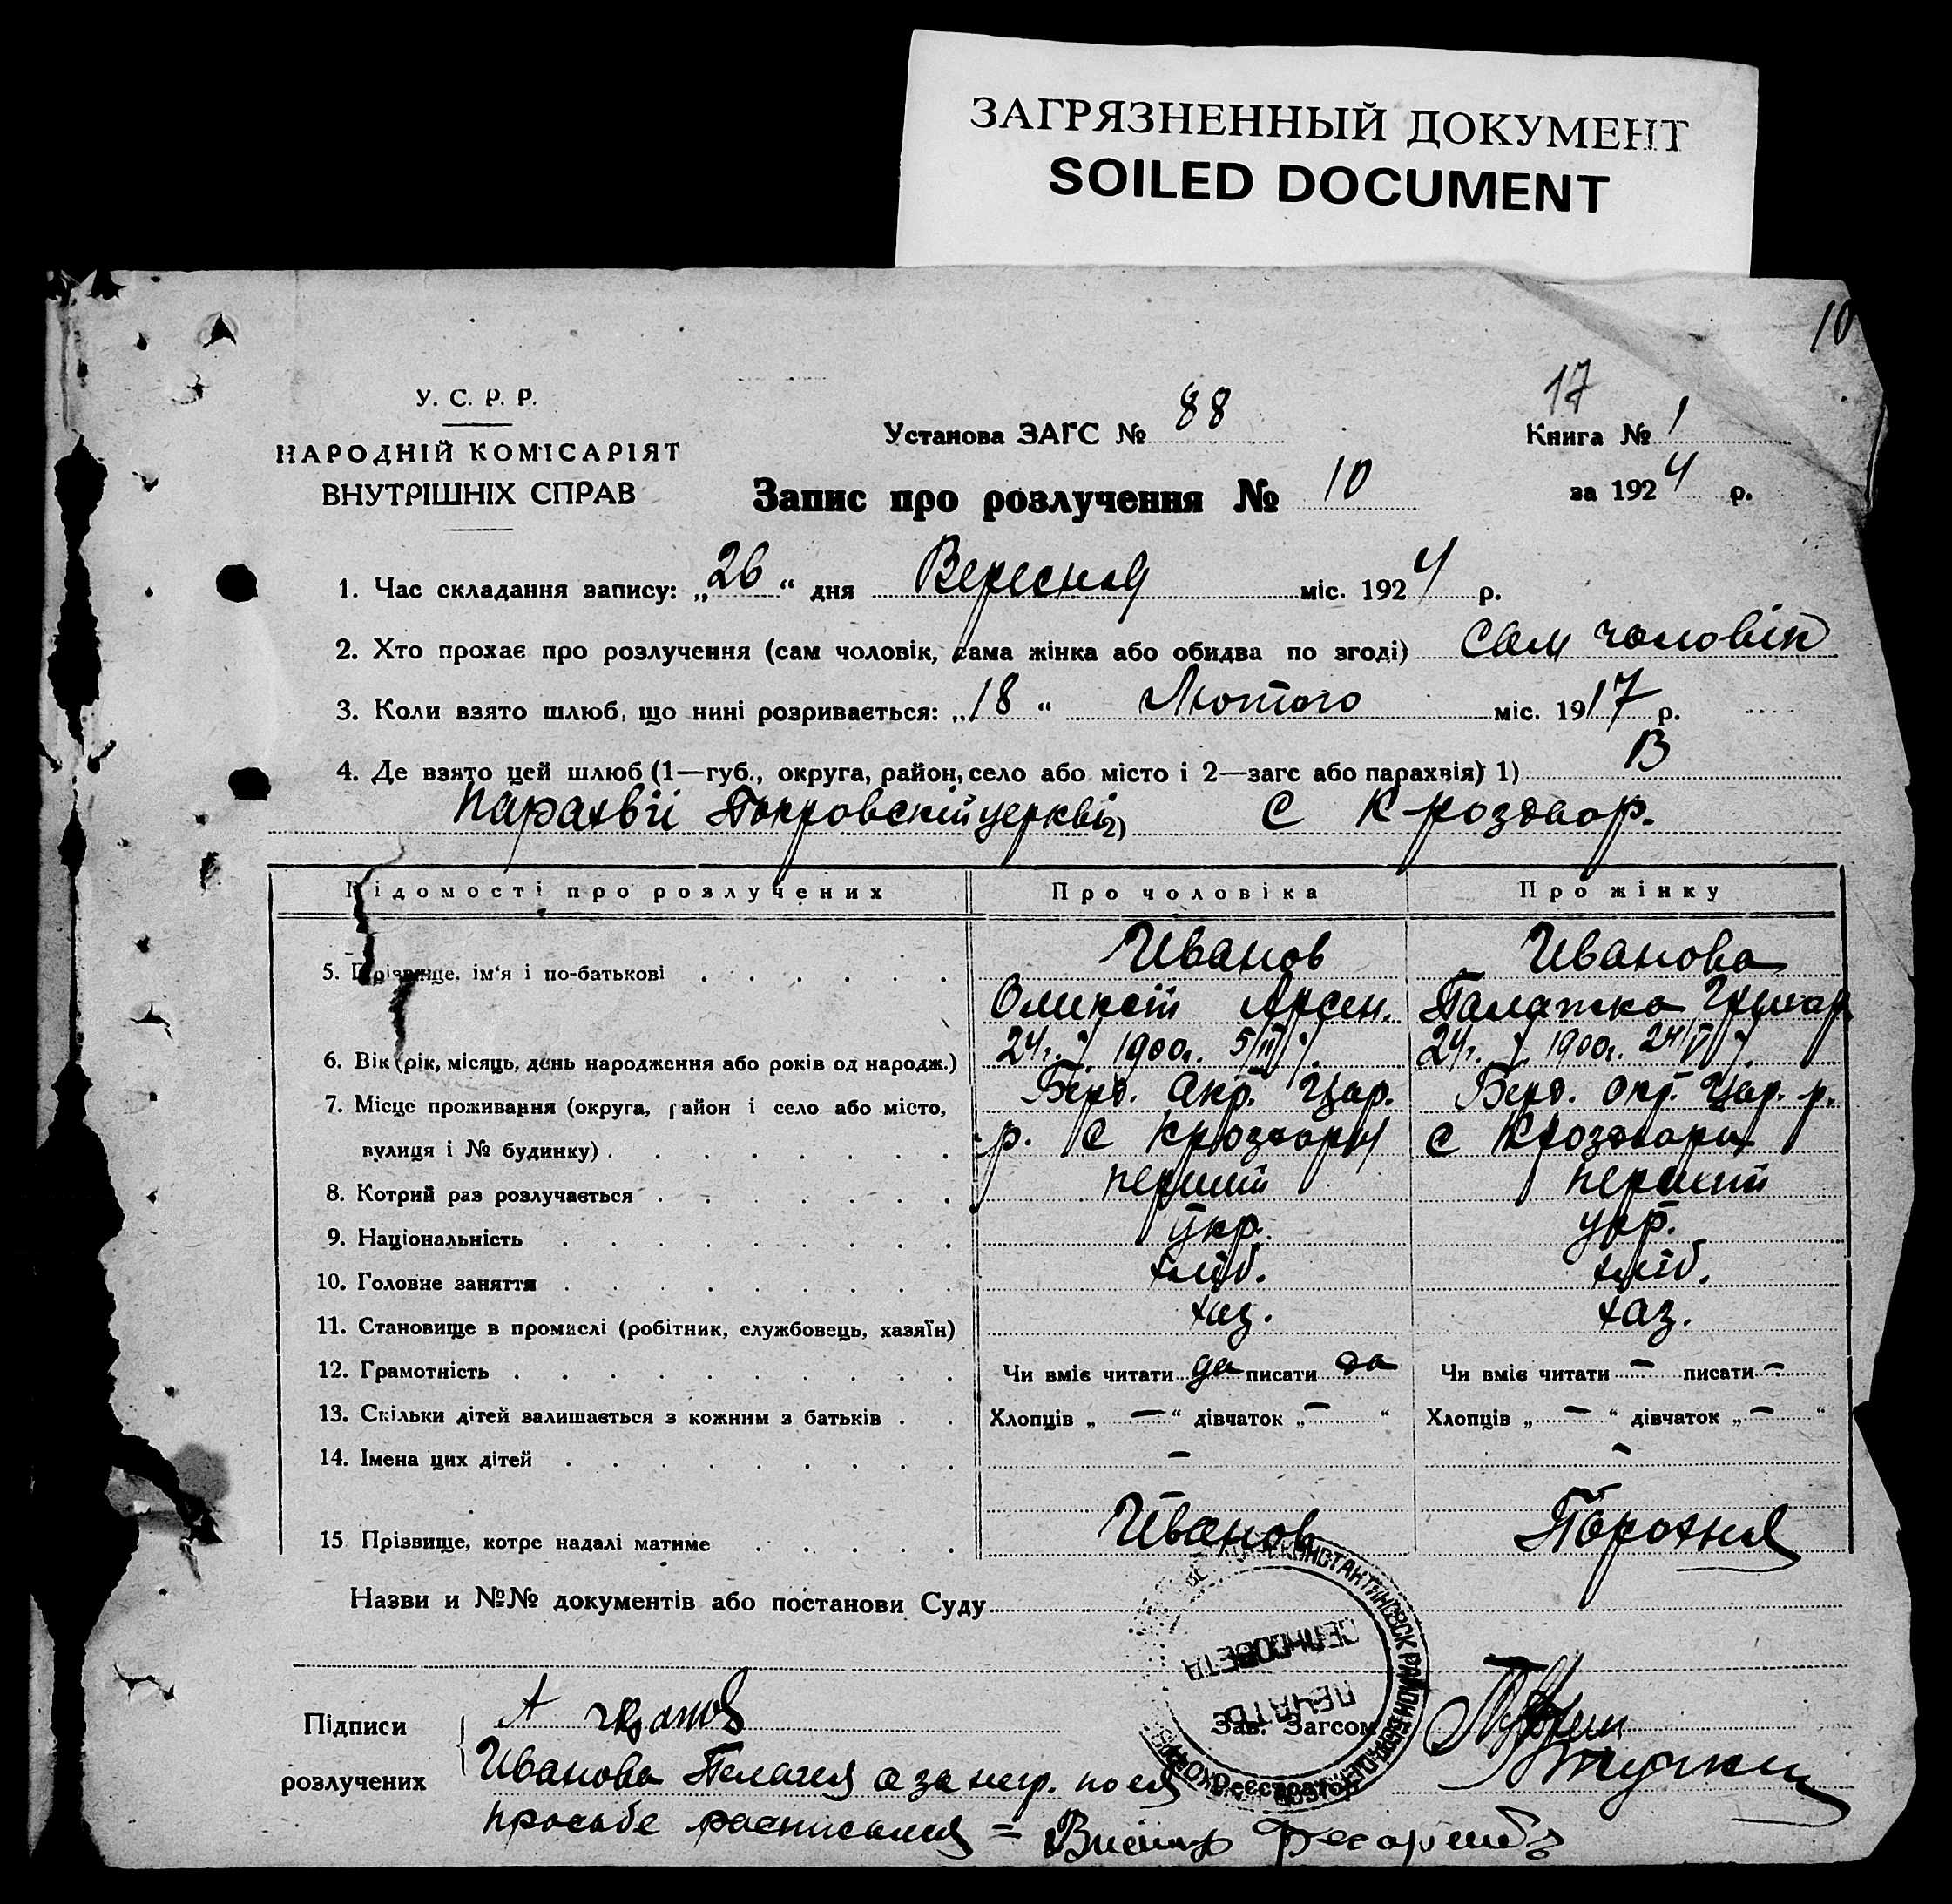 ЗАГРЯЗНЕННЫЙ ДОКУМЕНТ
SOILED DOCUMENT
10
У. С. Р. Р.
НАРОДНІЙ КОМІСАРІЯТ
ВНУТРІШНІХ СПРАВ
Установа ЗАГС № 88
17
Книга № 1
Запис про розлучення № 10
за 1924 р.
1. Час складання запису: „26“ дня Вересня міс. 1924 р.
2. Хто прохає про розлучення (сам чоловік, сама жінка або обидва по згоді) Сам чоловік
3. Коли взято шлюб, що нині розривається: „18“ Лютого міс. 1917 р.
4. Де взято цей шлюб (1—губ., округа, район, село або місто і 2—загс або парахвія) 1) В
парахвії Покровскій церкві 2) С
Відомості про розлучених Про чоловіка Про жінку
5. Прізвище, ім'я і по-батькові Иванов Иванова
Арсен.
6. Вік (рік, місяць, день народження або років од народж.) 24 г. 1900 г. 5/III 24 г. 1900 г. 24/VI
7. Місце проживання (округа, район і село або місто, Берд. Окр. Цар. Берд. окр. Цар. р.
вулиця і № будинку) р. С С
8. Котрий раз розлучається перший перший
9. Національність Укр. укр.
10. Головне заняття хліб. хліб.
11. Становище в промислі (робітник, службовець, хазяїн) хаз. хаз.
12. Грамотність Чи вміє читати да писати да Чи вміє читати — писати —
13. Скільки дітей залишається з кожним з батьків Хлопців „ — “ дівчаток „ — “ Хлопців „ — “ дівчаток „ — “
14. Імена цих дітей — —
15 Прізвище, котре надалі матиме Иванов Порохня
Назви и №№ документів або постанови Суду
Підписи А Иванов
розлучених Иванова Пелагея а за негр. по ея
просьбе расписался =
Зав. Загсом
Реєстратор
СЕЛЬСОВЕТА
ПЕЧАТЬ